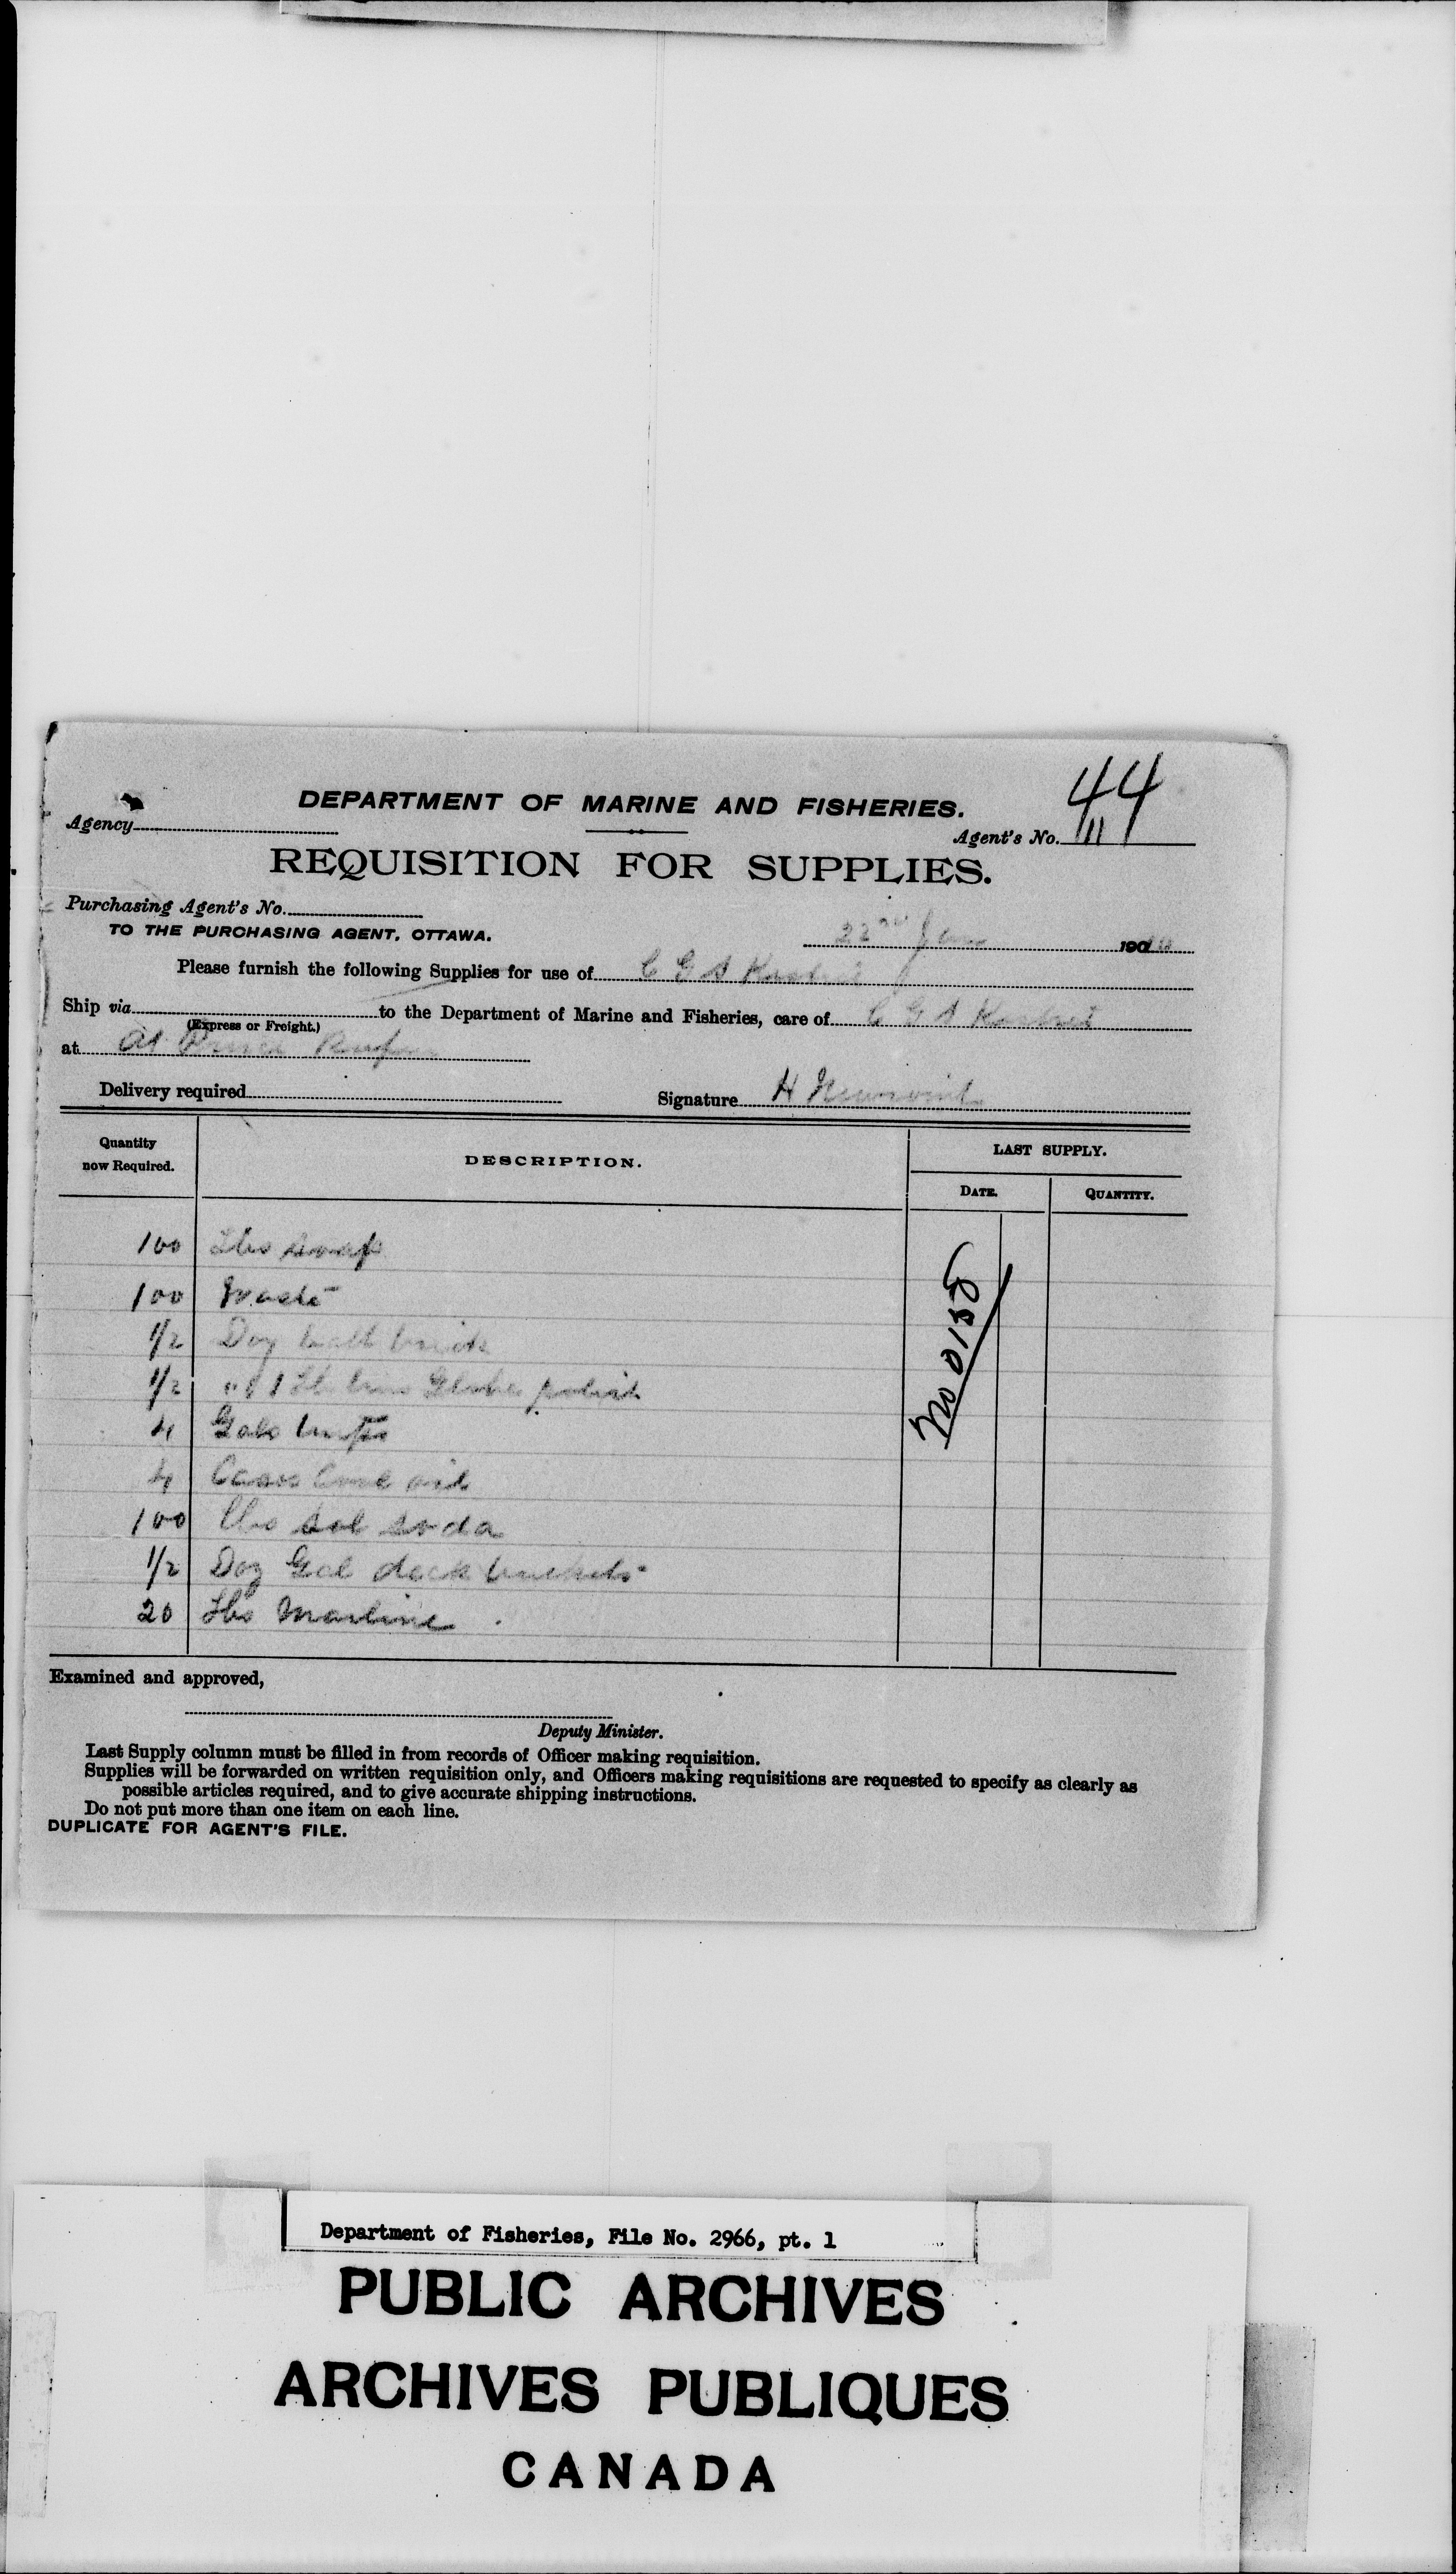 44
DEPARTMENT OF MARINE AND FISHERIES.
Agency
Agent's No. 111
REQUISITION FOR SUPPLIES.
Purchasing Agent's No.
TO THE PURCHASING AGENT, OTTAWA.
22nd 190
Please furnish the following Supplies for use of C G S Kestrel
Ship via to the Department of Marine and Fisheries, care of C G S Kestrel
(Express or Freight.)
at At Prince Rupert
Delivery required Signature H Newcomb
Quantity now Required. DESCRIPTION. LAST SUPPLY.
DATE. QUANTITY.
100 Lbs soap
100 Waste
1/2 Doz bath brick
1/2 " 1 Lb tins Globe polish
4 Gals
4 Cases coal oil
100 lbs sal soda
1/2 Doz Gal deck buckets
20 Lbs Marline
No 0155
Examined and approved,
Deputy Minister.
Last Supply column must be filled in from records of Officer making requisition.
Supplies will be forwarded on written requisition only, and Officers making requisitions are requested to specify as clearly as
possible articles required, and to give accurate shipping instructions.
Do not put more than one item on each line.
DUPLICATE FOR AGENT'S FILE.
Department of Fisheries, File No. 2966, pt. 1
PUBLIC ARCHIVES
ARCHIVES PUBLIQUES
CANADA